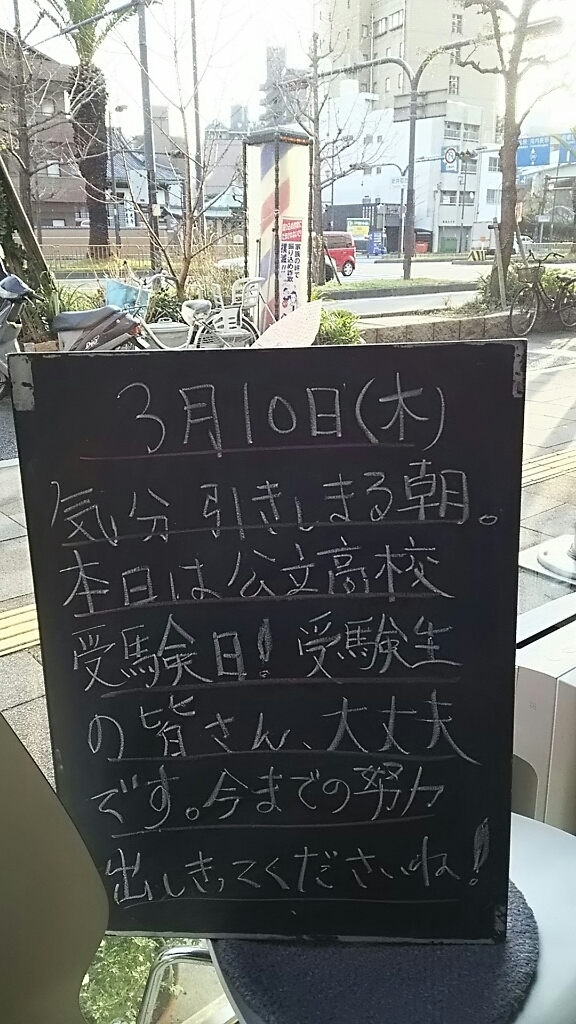 3月10日(木)
気分引きしまる朝。
本日は公立高校
受験日！受験生
の皆さん、大丈夫
です。今までの努力
出しきってくださいね！
家族の絆で
振り込め詐欺
撲滅!!